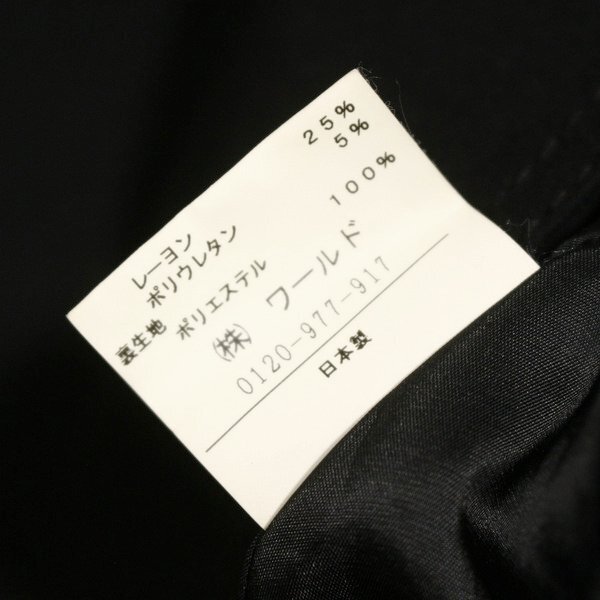 レーヨン 25%
ポリウレタン 5%
裏生地 ポリエステル 100%
(株) ワールド
0120-977-917
日本製